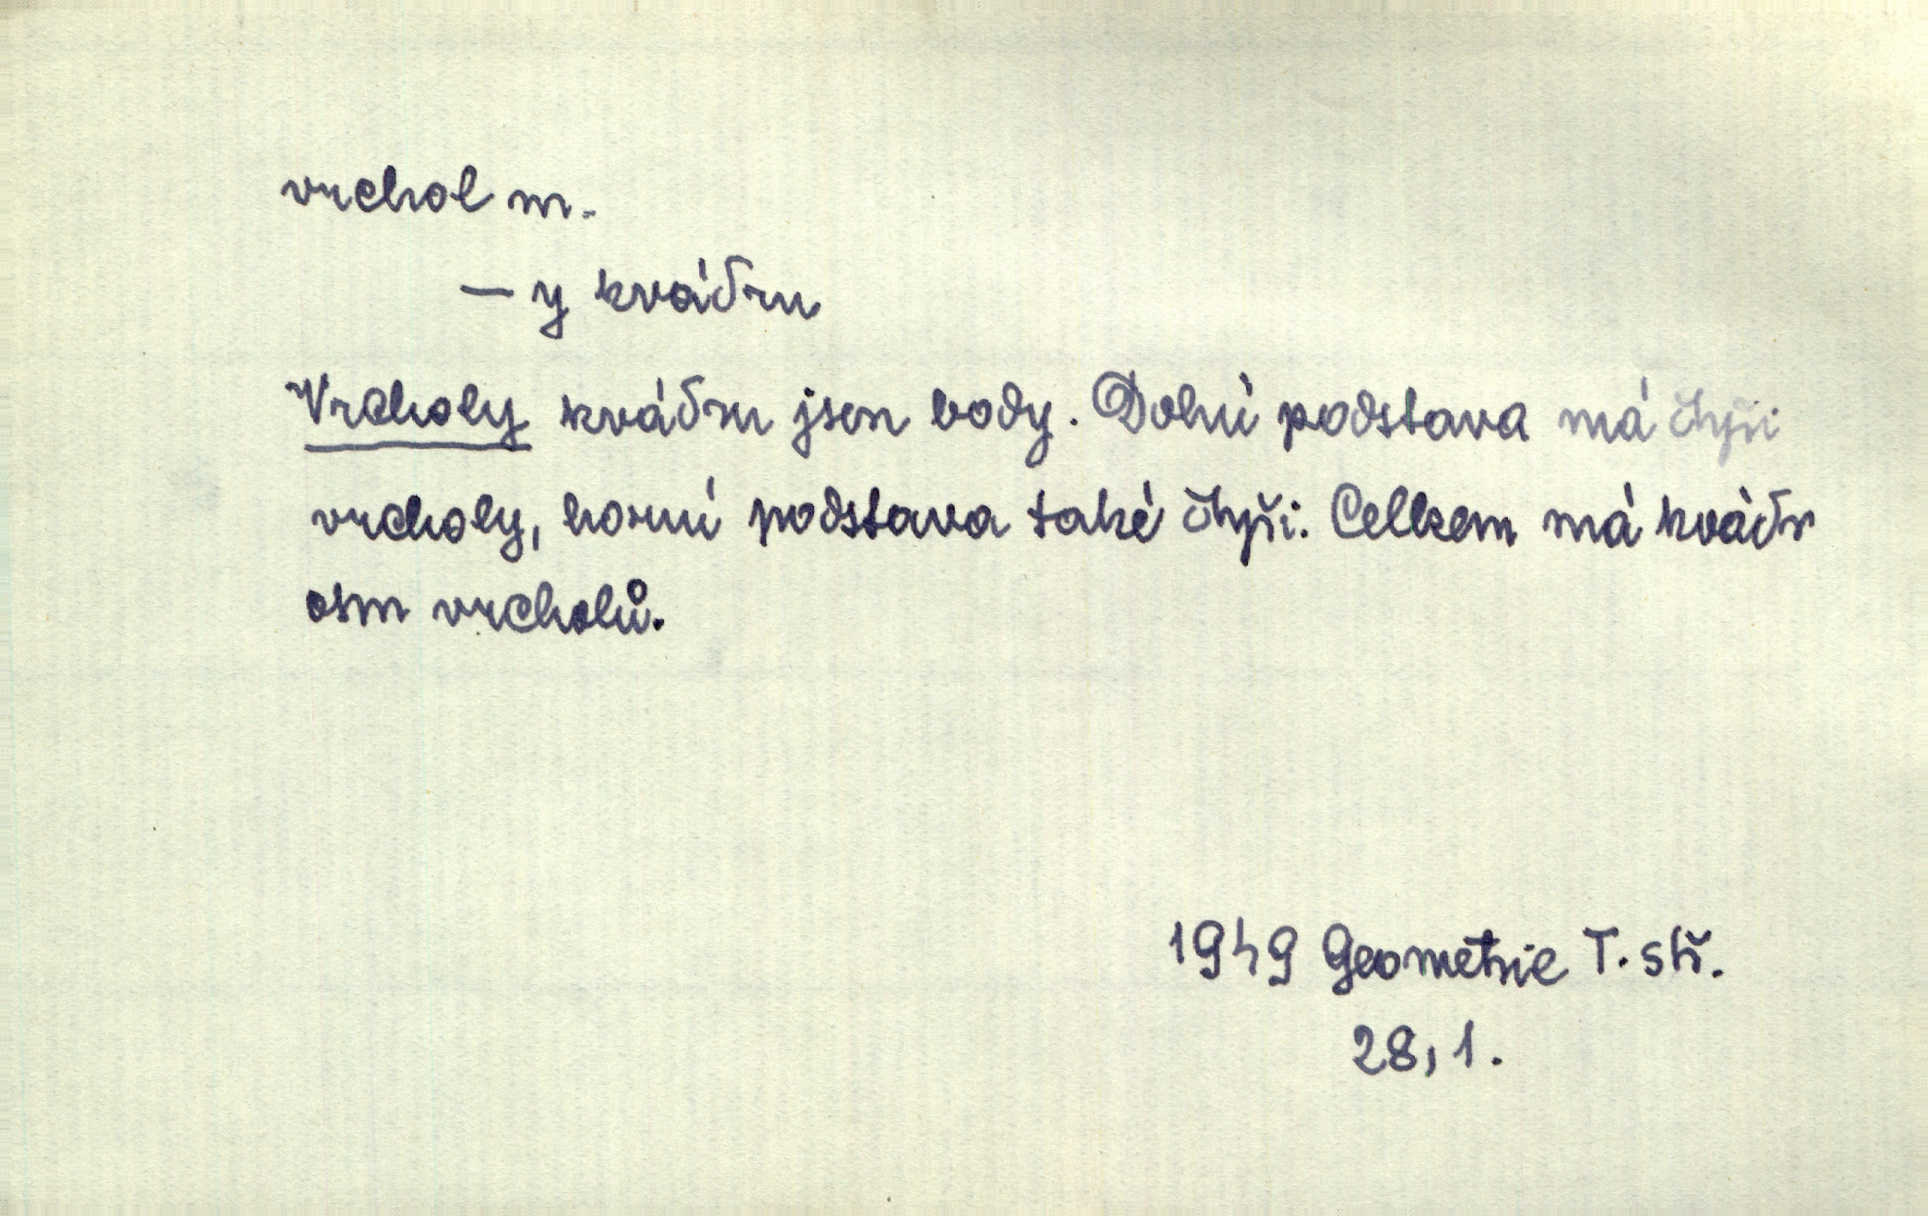 vrchol m.
— y kvádru
Vrcholy kvádru jsou body. Dolní podstava má čtyři
vrcholy, horní podstava také čtyři. Celkem má kvádr
osm vrcholů.
1949 Geometrie T. stř.
28, 1.